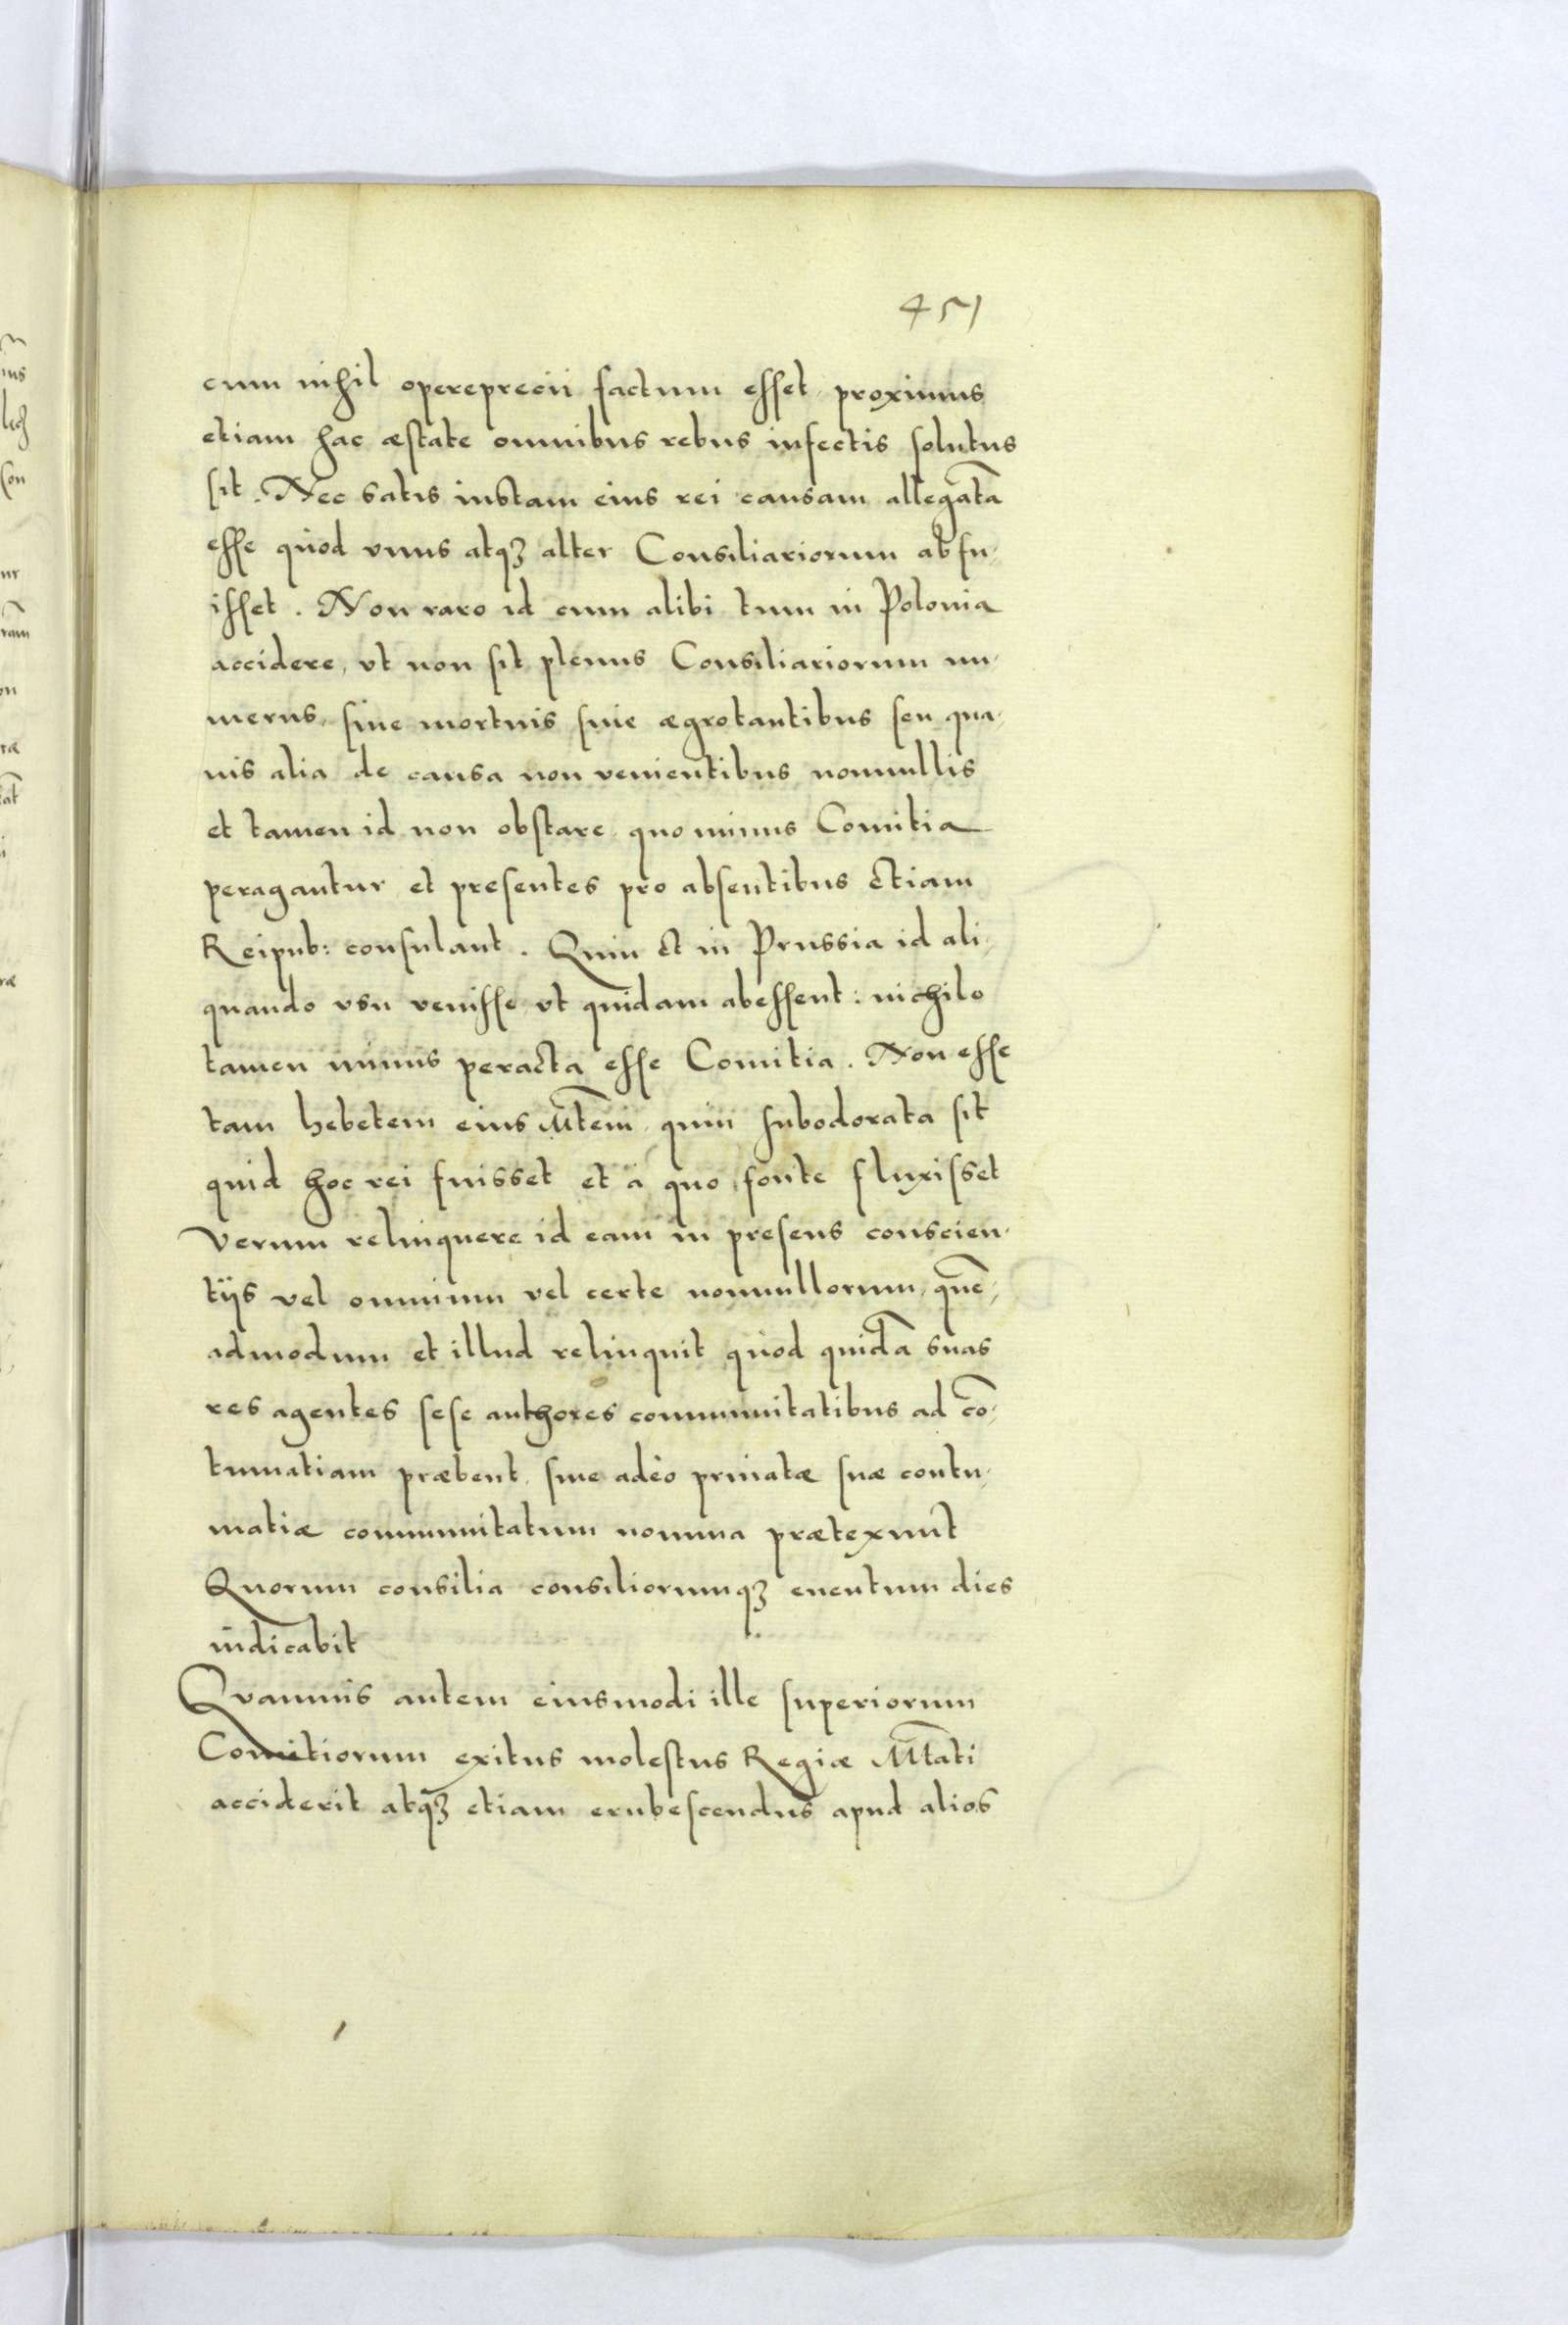 451
cum nihil opereprecii factum esset, proximus
etiam hac æstate omnibus rebus infectis solutus
sit. Nec satis iustam eius rei causam allegatā
esse quòd vnus atqꝫ alter Consiliariorum abfu,
isset. Non raro id cum alibi tum in Polonia
accidere, vt non sit plenus Consiliariorum nu,
merus, siue mortuis siue ægrotantibus seu qua,
uis alia de causa non venientibus nonnullis
et tamen id non obstare, quo minus Comitia
peragantur et presentes pro absentibus etiam
Reipub: consulant. Quin et in Prussia id ali,
quando vsu venisse vt quidam abessent: nichilo
tamen minus peracta esse Comitia. Non esse
tam hebetem eius Mt̄em, quin subodorata sit
quid hoc rei fuisset et à quo fonte fluxisset
Verum relinquere id eam in presens conscien,
tijs vel omnium vel certe nonnullorum, quē,
admodum et illud relinquit quòd quidā suas
res agentes sese authores communitatibus ad cō,
tumatiam præbent, siue adeò priuatæ suæ contu,
matiæ communitatum nomina prætexunt
Quorum consilia consiliorumqꝫ euentum dies
indicabit
Quamuis autem eiusmodi ille superiorum
Comitiorum exitus molestus Regiæ Mt̄ati
acciderit atqꝫ etiam erubescendus apud alios